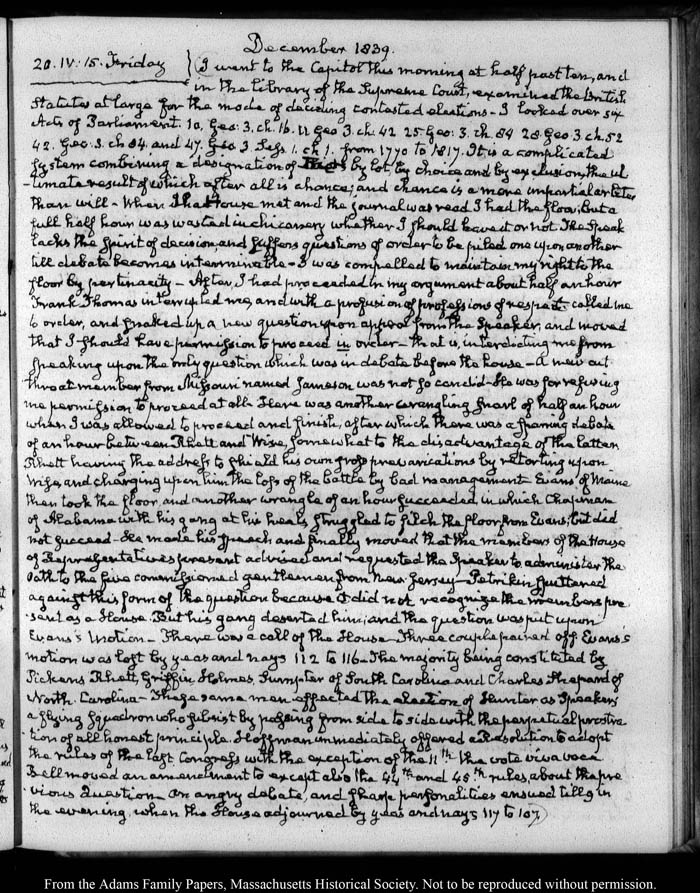 December 1839.
20. IV: 15. Friday } I went to the Capitol this morning at half past ten, and
in the Library of the Supreme Court, examined the British
Statutes at large for the mode of deciding contested elections - I looked over six
Acts of Parliament. 10. Geo: 3. ch. 16. 11 Geo 3. ch. 42 25 Geo: 3. ch. 84 28 Geo. 3 ch. 52
42. Geo: 3. ch 84. and 47. Geo 3 Sess 1. ch 1. from 1770 to 1817. It is a complicated
System combining a designation of by lot, by choice and by exclusion, the ul
-timate result of which after all is chance; and chance is a more impartial arbiter
than will - When the House met and the journal was read I had the floor; but a
full half hour was wasted in chicanery whether I should have it or not. The Speaker
lacks the Spirit of decision, and suffers questions of order to be piled one upon another
till debate becomes interminable - I was compelled to maintain my right to the
floor by pertinacity - After I had proceeded in my argument about half an hour
Frank Thomas interrupted me, and with a profusion of professions of respect called me
to order, and snaked up a new question upon appeal from the Speaker, and moved
that I should have permission to proceed in order - that is, interdicting me from
speaking upon the only question which was in debate before the house - A new cut
throat member from Missouri named Jameson was not so candid - He was for refusing
me permission to proceed at all. Here was another wrangling snarl of half an hour
when I was allowed to proceed and finish, after which there was a foaming debate
of an hour between Rhett and Wise, somewhat to the disadvantage of the latter
Rhett having the address to shield his own gross prevarications by retorting upon
Wise, and charging upon him the loss of the battle by bad management. Evans of Maine
then took the floor, and another wrangle of an hour succeeded in which Chapman
of Alabama with his gang at his heels, struggled to filch the floor from Evans; but did
not succeed - He made his speech and finally moved that the members of the House
of Representatives present advised and requested the Speaker to administer the
Oath to the five commissioned gentlemen from New Jersey - Petrikin sputtered
against this form of the question because it did not recognize the members pre
-sent as a House. But his gang deserted him, and the question was put upon
Evans's Motion - There was a call of the House - Three couple paired off. Evans's
motion was lost by yeas and nays 112 to 116 - The majority being constituted by
Pickens Rhett, Griffin Holmes, Sumpter of South Carolina and Charles Shepard of
North. Carolina - These same men effected the election of Hunter as Speaker;
a flying Squadron who subsist by passing from side to side with the perpetual prostra
-tion of all honest principle. Hoffman immediately offered a Resolution to adopt
the rules of the last Congress with the exception of the 11th the vote viva voce
Bell moved an amendment to except also the 44th and 45th rules, about the pre
-vious Question - an angry debate, and sharp personalities ensued till 9 in
the evening, when the House adjourned by yeas and nays 117 to 107
From the Adams Family Papers, Massachusetts Historical Society. Not to be reproduced without permission.